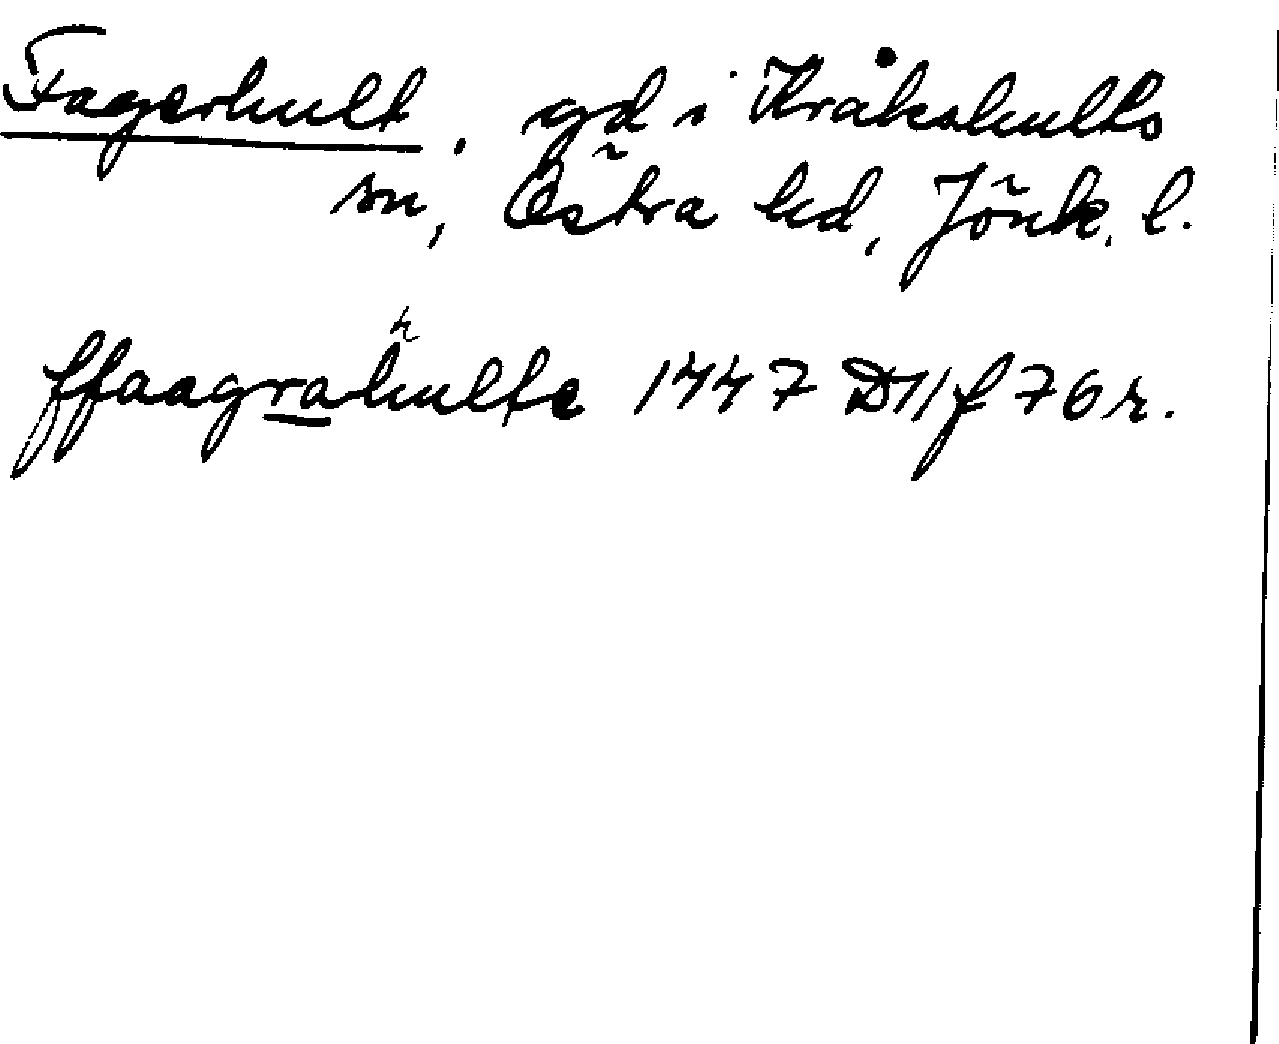 Fagerhult, gd i Kråkshults
sn, Östra hd, Jönk. l.
h
ffaagrahulte 1447 D11 f 76 r.